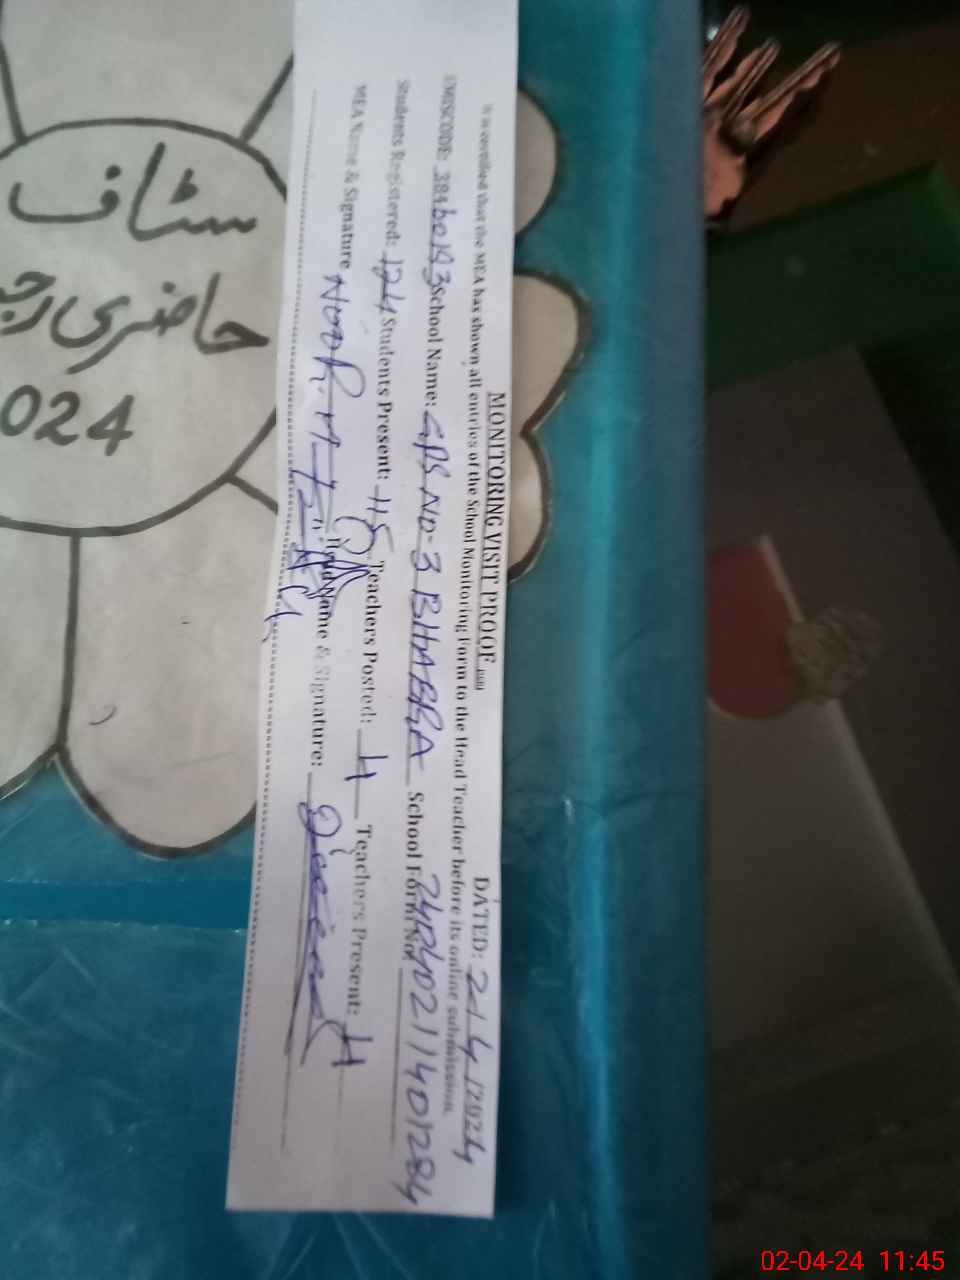 سٹاف
حاضری رجـ
024
MONITORING VISIT PROOF
DATED: 2/4/2024
It is certified that the MEA has shown all entries of the School Monitoring Form to the Head Teacher before its online submission.
EMISCODE: School Name: GPS NO-3 BHABRA School Form No. 2404021401284
Students Registered: 124 Students Present: 115 Teachers Posted: 4 Teachers Present: 4
MEA Name & Signature NOOR Head Name & Signature:
02-04-24 11:45